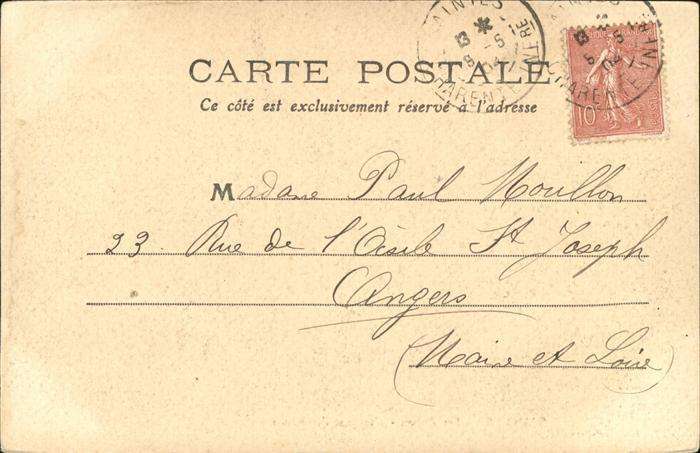 CARTE POSTALE
Ce côté est exclusivement réservé à l'adresse
10
Madame Paul Moullon
23. Rue de l'Asile St Joseph
Angers
(Maine et Loire)